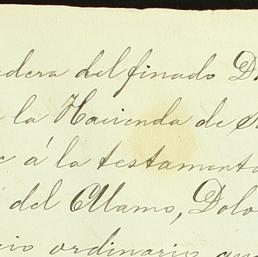 edera del finado D
la Hacienda de S
á la testamenta
del Alamo, Dolo
cio ordinario que